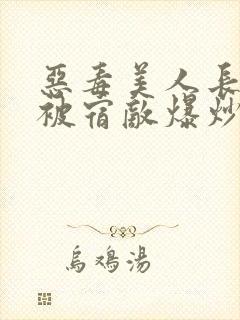 惡毒美人長
被宿敵爆炒
烏鳮湯